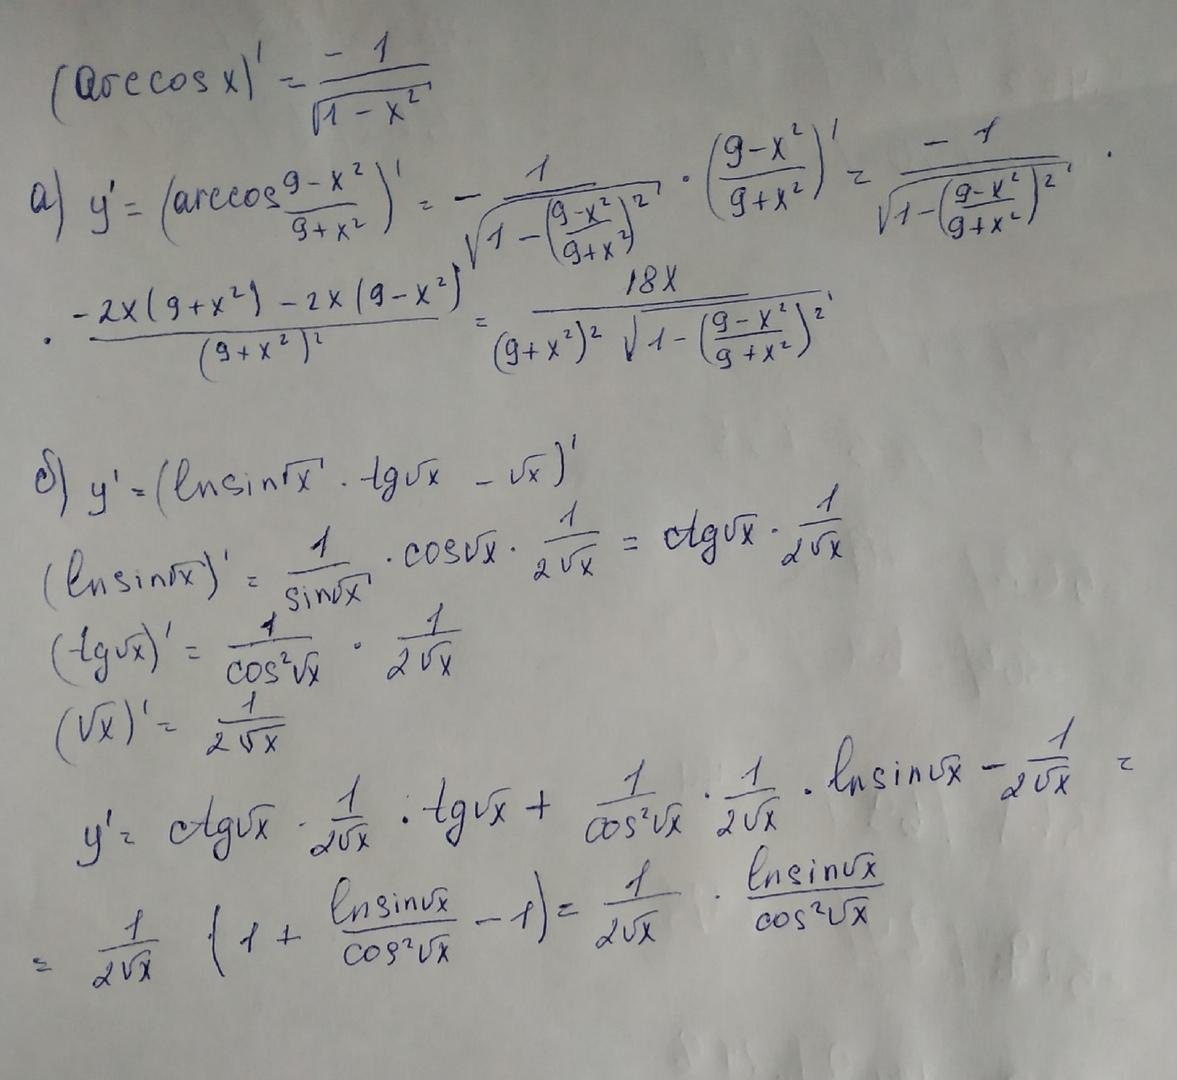 (arccos x)' = -1/√(1-x²)
а) y' = (arccos (9-x²)/(9+x²))' = - 1/√(1-((9-x²)/(9+x²))²) · ((9-x²)/(9+x²))' = -1/√(1-((9-x²)/(9+x²))²) ·
· (-2x(9+x²) - 2x(9-x²))/(9+x²)² = 18x/((9+x²)² √(1-((9-x²)/(9+x²))²))
б) y' = (ln sin√x · tg√x - √x)'
(ln sin√x)' = 1/sin√x · cos√x · 1/(2√x) = ctg√x · 1/(2√x)
(tg√x)' = 1/cos²√x · 1/(2√x)
(√x)' = 1/(2√x)
y' = ctg√x · 1/(2√x) · tg√x + 1/cos²√x · 1/(2√x) · ln sin√x - 1/(2√x) =
= 1/(2√x) (1 + ln sin√x/cos²√x - 1) = 1/(2√x) · ln sin√x/cos²√x